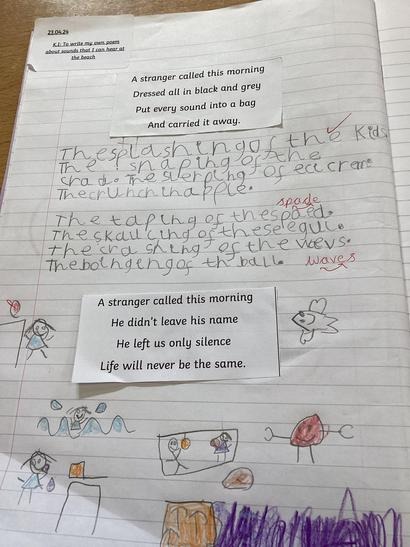 23.04.24
K.I: To write my own poem
about sounds that I can hear at
the beach
A stranger called this morning
Dressed all in black and grey
Put every sound into a bag
And carried it away.
The splashing of the Kids
The snaping of the
crad. The slerping of
The crunchin apple.
spade
The taping of the spaed.
The of the
The crashing of the
The boinging of th ball.
waves
A stranger called this morning
He didn't leave his name
He left us only silence
Life will never be the same.